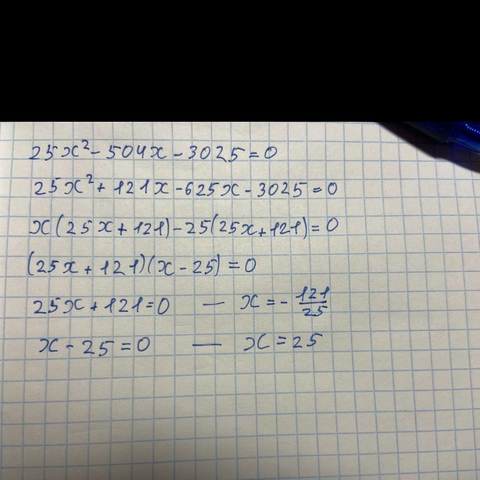 25x² - 504x - 3025 = 0
25x² + 121x - 625x - 3025 = 0
x(25x + 121) - 25(25x + 121) = 0
(25x + 121)(x - 25) = 0
25x + 121 = 0 — x = - 121/25
x - 25 = 0 — x = 25